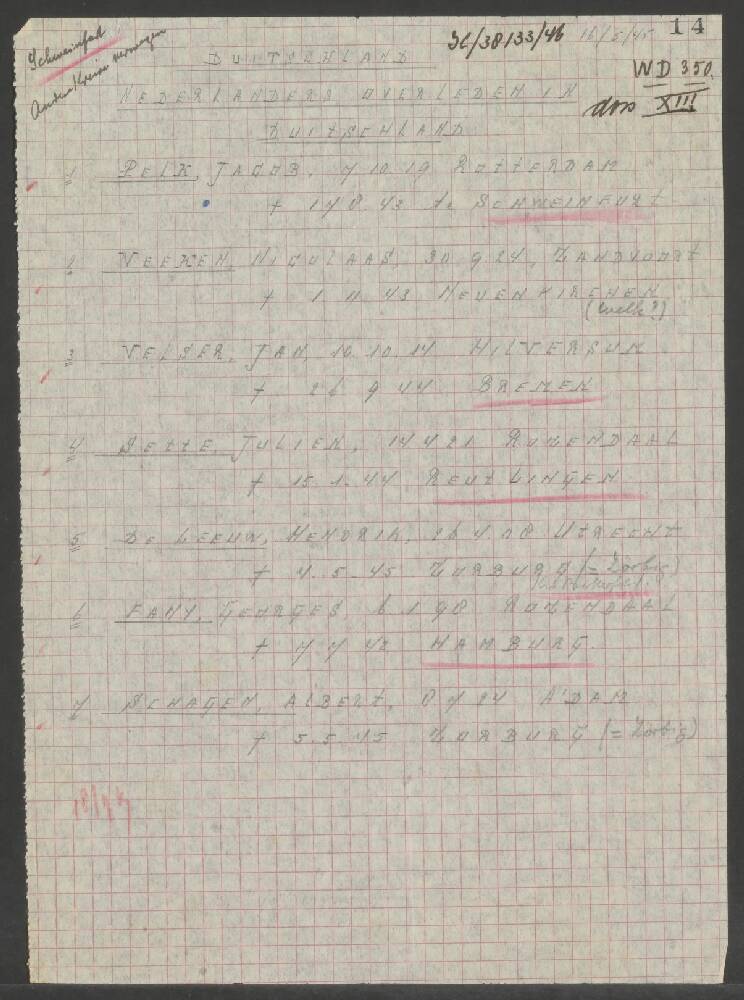 Schweinfurt
SC/38133/46 16/5/45 14
WD 350
dos XIII
DUITSCHLAND
NEDERLANDERS OVERLEDEN IN
DUITSCHLAND
1 PELK, JACOB, 7 10 19 ROTTERDAM
+ 17 8 43 te SCHWEINFURT
2 NEEKEN, NICOLAAS, 30 9 24, ZANDVOORT
+ 1 11 43 NEUENKIRCHEN
(welk?)
3 VELSER, JAN 10.10.14 HILVERSUM
+ 26 9 44 BREMEN
4 SETTE, JULIEN, 14 4 21 ROZENDAAL
+ 15.1.44 REUTLINGEN
5 DE LEEUW, HENDRIK, 26 4 08 UTRECHT
+ 4.5.45 ZURBURG (= Zörbig)
6 FANY, GEORGES, 6 1 98 ROZENDAAL
+ 7 7 42 HAMBURG
7 SCHAGEN, ALBERT, 8 7 24 A'DAM
+ 5.5.45 ZURBURG (= Zörbig)